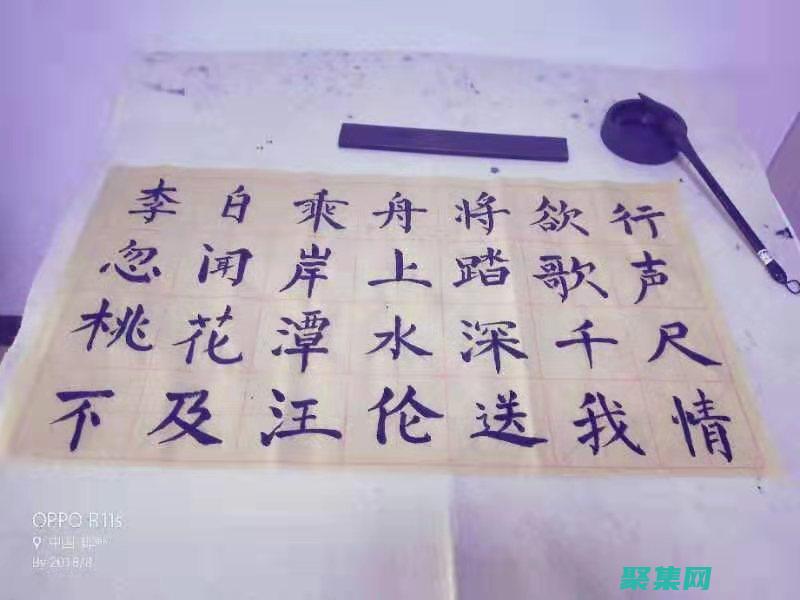 李白乘舟将欲行
忽闻岸上踏歌声
桃花潭水深千尺
不及汪伦送我情
OPPO R11s
中国
By 2018/8
聚集网